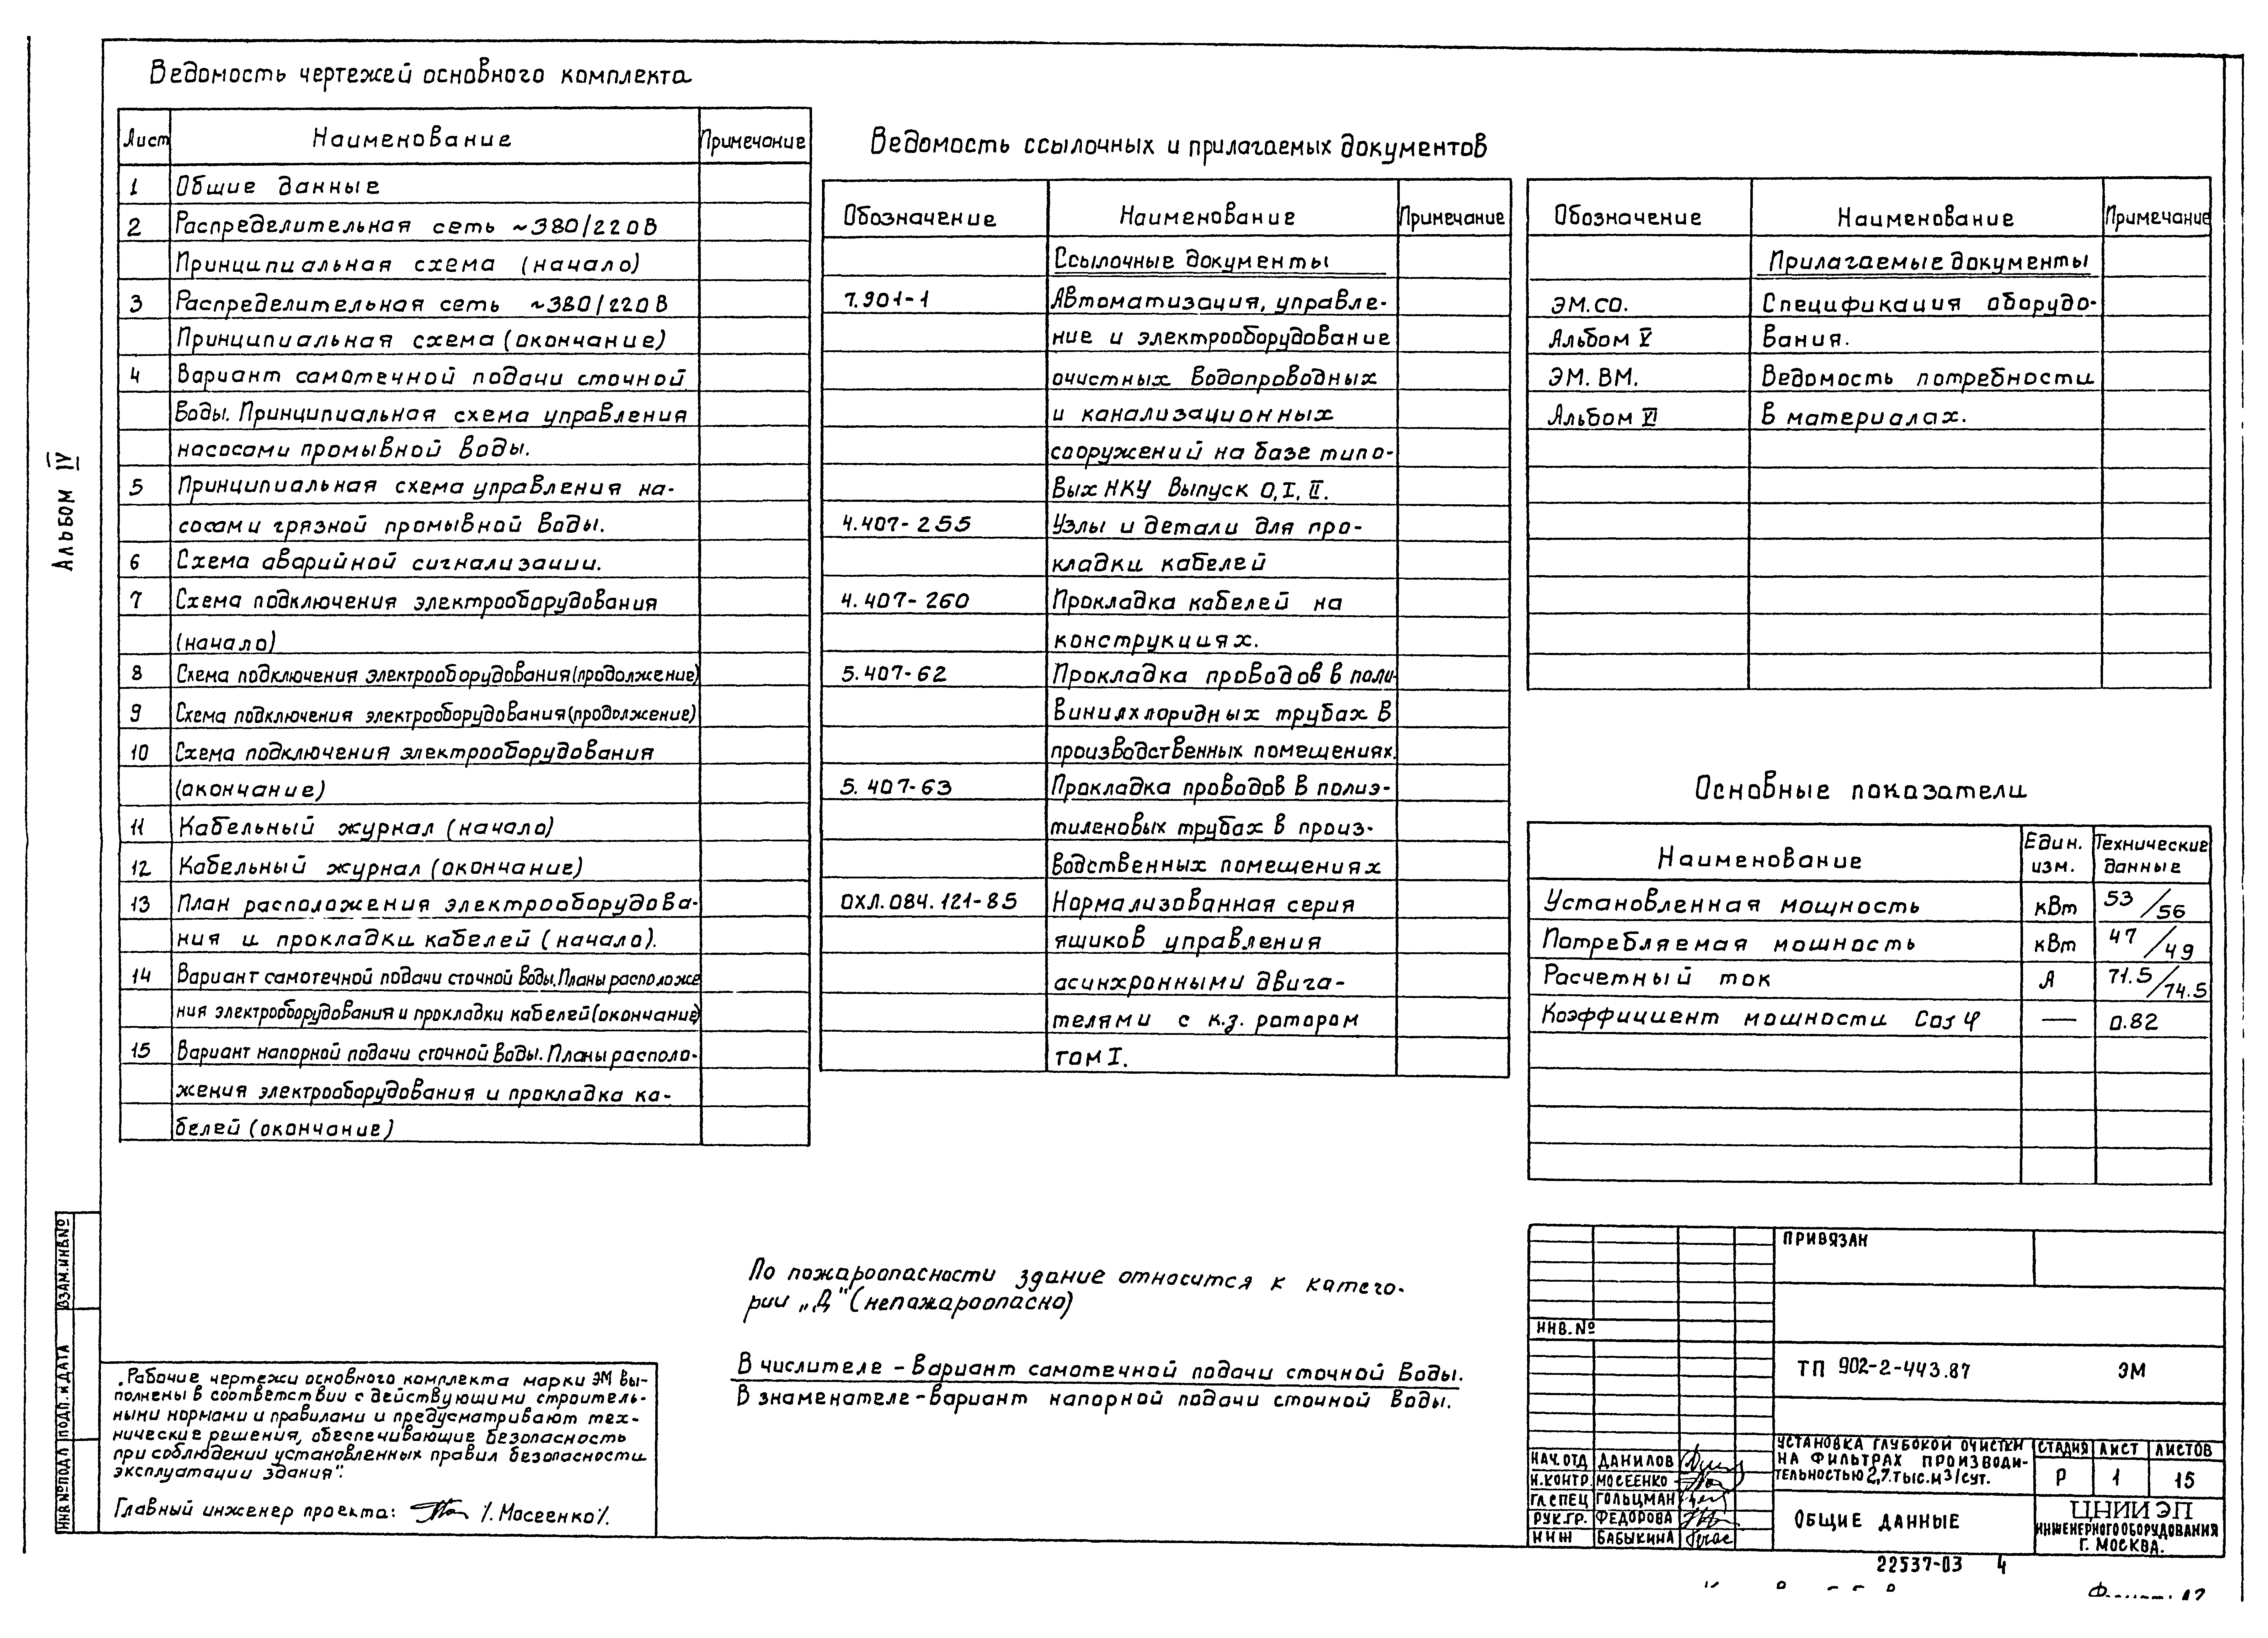 Альбом IV
Ведомость чертежей основного комплекта
Лист Наименование Примечание
1 Общие данные
2 Распределительная сеть ~380/220В
Принципиальная схема (начало)
3 Распределительная сеть ~380/220В
Принципиальная схема (окончание)
4 Вариант самотечной подачи сточной
воды. Принципиальная схема управления
насосами промывной воды.
5 Принципиальная схема управления на-
сосами грязной промывной воды.
6 Схема аварийной сигнализации.
7 Схема подключения электрооборудования
(начало)
8 Схема подключения электрооборудования (продолжение)
9 Схема подключения электрооборудования (продолжение)
10 Схема подключения электрооборудования
(окончание)
11 Кабельный журнал (начало)
12 Кабельный журнал (окончание)
13 План расположения электрооборудова-
ния и прокладки кабелей (начало).
14 Вариант самотечной подачи сточной воды. Планы расположе
ния электрооборудования и прокладки кабелей (окончание)
15 Вариант напорной подачи сточной воды. Планы располо-
жения электрооборудования и прокладка ка-
белей (окончание)
Ведомость ссылочных и прилагаемых документов
Обозначение Наименование Примечание
Ссылочные документы
7.901-1 Автоматизация, управле-
ние и электрооборудование
очистных водопроводных
и канализационных
сооружений на базе типо-
вых НКУ Выпуск 0, I, II.
4.407-255 Узлы и детали для про-
кладки кабелей
4.407-260 Прокладка кабелей на
конструкциях.
5.407-62 Прокладка проводов в поли-
винилхлоридных трубах в
производственных помещениях.
5.407-63 Прокладка проводов в полиэ-
тиленовых трубах в произ-
водственных помещениях
ОХЛ.084.121-85 Нормализованная серия
ящиков управления
асинхронными двига-
телями с к.з. ротором
том I.
Обозначение Наименование Примечание
Прилагаемые документы
ЭМ.СО. Спецификация оборудо-
Альбом V вания.
ЭМ.ВМ. Ведомость потребности
Альбом VI в материалах.
Основные показатели
Наименование Един. изм. Технические данные
Установленная мощность кВт 53/56
Потребляемая мощность кВт 47/49
Расчетный ток А 71.5/74.5
Коэффициент мощности Cos φ — 0.82
По пожароопасности здание относится к катего-
рии „Д" (непожароопасно)
В числителе - вариант самотечной подачи сточной воды.
В знаменателе - вариант напорной подачи сточной воды.
„Рабочие чертежи основного комплекта марки ЭМ вы-
полнены в соответствии с действующими строитель-
ными нормами и правилами и предусматривают тех-
нические решения, обеспечивающие безопасность
при соблюдении установленных правил безопасности
эксплуатации здания".
Главный инженер проекта: /. Мосеенко/.
ВЗАМ. ИНВ №
ПОДП. И ДАТА
ИНВ № ПОДЛ
ПРИВЯЗАН
ИНВ. №
ТП 902-2-443.87 ЭМ
НАЧ.ОТД ДАНИЛОВ
Н.КОНТР МОСЕЕНКО
ГЛ.СПЕЦ ГОЛЬЦМАН
РУК.ГР. ФЕДОРОВА
ИНЖ БАБЫКИНА
УСТАНОВКА ГЛУБОКОЙ ОЧИСТКИ
НА ФИЛЬТРАХ ПРОИЗВОДИ-
ТЕЛЬНОСТЬЮ 2,7 ТЫС. М3/СУТ.
СТАДИЯ ЛИСТ ЛИСТОВ
Р 1 15
ОБЩИЕ ДАННЫЕ
ЦНИИЭП
ИНЖЕНЕРНОГО ОБОРУДОВАНИЯ
Г. МОСКВА.
22537-03 4